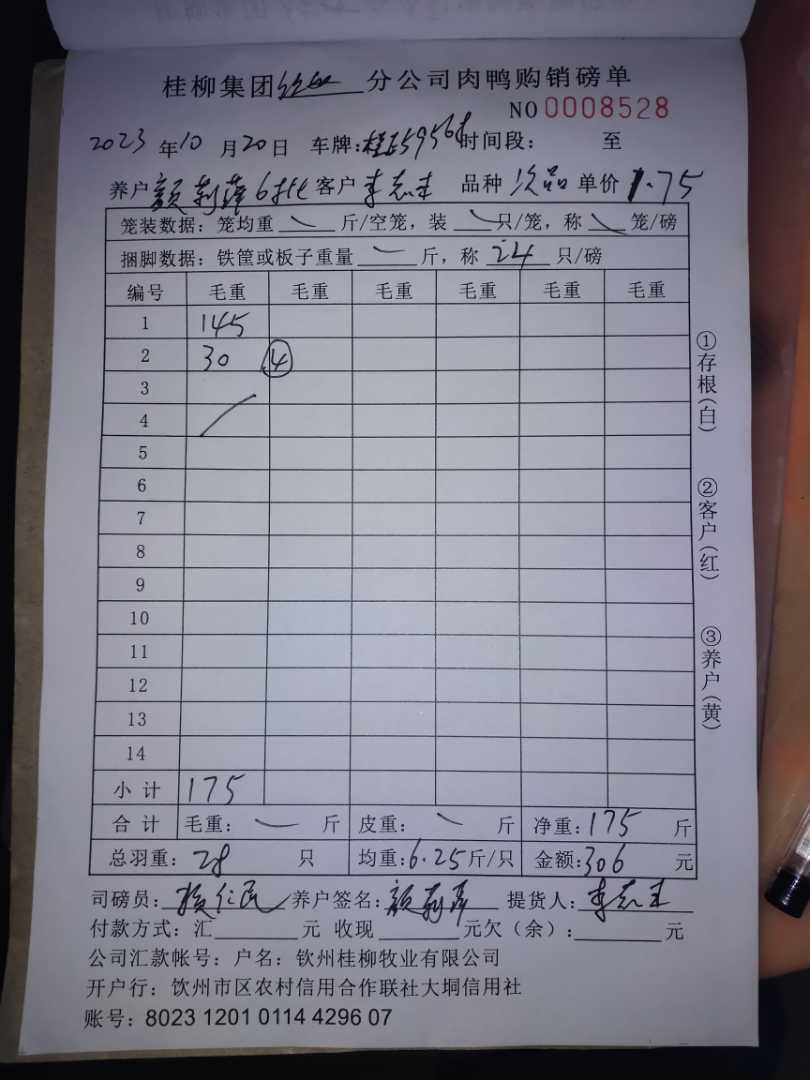 桂柳集团 分公司肉鸭购销磅单
NO 0008528
2023 年 10 月 20 日 车牌: 时间段: 至
养户 颜 6批 客户 李志 品种 次品 单价 1.75
笼装数据: 笼均重 斤/空笼, 装 只/笼, 称 笼/磅
捆脚数据: 铁筐或板子重量 斤, 称 24 只/磅
编号 毛重 毛重 毛重 毛重 毛重 毛重
1 145
2 30 ④
3
4
5
6
7
8
9
10
11
12
13
14
小 计 175
合 计 毛重: 斤 皮重: 斤 净重: 175 斤
总羽重: 28 只 均重: 6.25 斤/只 金额: 306 元
司磅员: 仁民 养户签名: 颜 提货人: 李志
付款方式: 汇 元 收现 元欠(余): 元
公司汇款帐号: 户名: 钦州桂柳牧业有限公司
开户行: 钦州市区农村信用合作联社大垌信用社
账号: 8023 1201 0114 4296 07
①存根(白)
②客户(红)
③养户(黄)